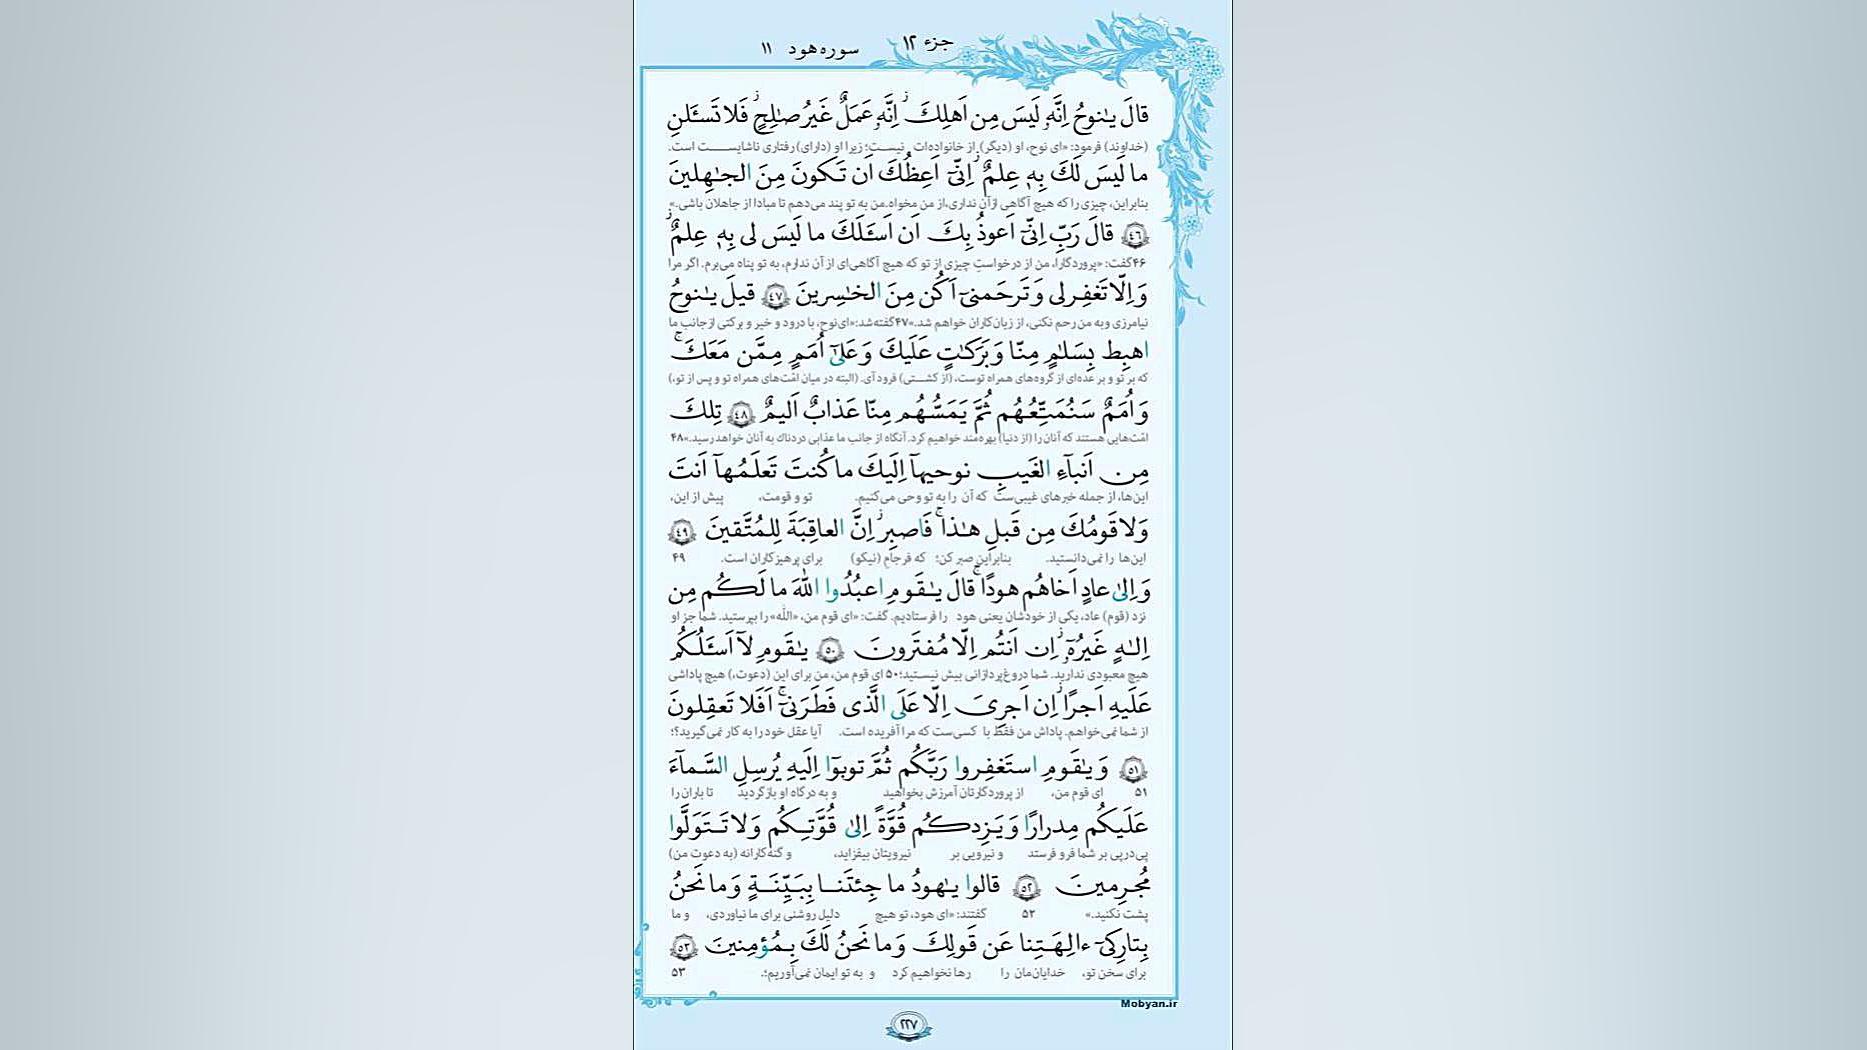 جزء ۱۲ سوره هود ۱۱
قالَ یـٰنوحُ اِنَّهٗ لَیسَ مِن اَهلِكَ ۖ اِنَّهٗ عَمَلٌ غَیرُ صـٰلِحٍ ۖ فَلا تَسـَٔلنِ
(خداوند) فرمود: «ای نوح، او (دیگر) از خانواده‌ات نیست؛ زیرا او (دارای) رفتاری ناشایست است.
ما لَیسَ لَكَ بِهٖ عِلمٌ ۖ اِنّیٓ اَعِظُكَ اَن تَكونَ مِنَ الجـٰهِلینَ
بنابراین، چیزی را که هیچ آگاهی از آن نداری، از من مخواه. من به تو پند می‌دهم تا مبادا از جاهلان باشی.»
﴿٤٦﴾ قالَ رَبِّ اِنّیٓ اَعوذُ بِكَ اَن اَسـَٔلَكَ ما لَیسَ لی بِهٖ عِلمٌ ۖ
۴۶ گفت: «پروردگارا، من از درخواستِ چیزی از تو که هیچ آگاهی‌ای از آن ندارم، به تو پناه می‌برم. اگر مرا
وَ اِلّا تَغفِرلی وَ تَرحَمنیٓ اَكُن مِنَ الخـٰسِرینَ ﴿٤٧﴾ قیلَ یـٰنوحُ
نیامرزی و به من رحم نکنی، از زیان‌کاران خواهم شد.» ۴۷ گفته شد: «ای نوح، با درود و خیر و برکتی از جانب ما
اهبِط بِسَلـٰمٍ مِنّا وَ بَرَكـٰتٍ عَلَیكَ وَ عَلیٰٓ اُمَمٍ مِمَّن مَعَكَ ۚ
که بر تو و بر عده‌ای از گروه‌های همراه توست، (از کشتی) فرود آی. (البته در میان امّت‌های همراه تو و پس از تو،)
وَ اُمَمٌ سَنُمَتِّعُهُم ثُمَّ یَمَسُّهُم مِنّا عَذابٌ اَلیمٌ ﴿٤٨﴾ تِلكَ
امّت‌هایی هستند که آنان را (از دنیا) بهره‌مند خواهیم کرد. آنگاه از جانب ما عذابی دردناک به آنان خواهد رسید.» ۴۸
مِن اَنبآءِ الغَیبِ نوحیهآ اِلَیكَ ما كُنتَ تَعلَمُهآ اَنتَ
این‌ها، از جمله خبرهای غیبی‌ست که آن را به تو وحی می‌کنیم. تو و قومت، پیش از این،
وَلا قَومُكَ مِن قَبلِ هـٰذا ۖ فَاصبِر ۖ اِنَّ العاقِبَةَ لِلمُتَّقینَ ﴿٤٩﴾
این‌ها را نمی‌دانستید. بنابراین صبر کن؛ که فرجام (نیکو) برای پرهیزکاران است. ۴۹
وَ اِلیٰ عادٍ اَخاهُم هودًا ۚ قالَ یـٰقَومِ اعبُدُوا اللهَ ما لَكُم مِن
نزد (قوم) عاد، یکی از خودشان یعنی هود را فرستادیم. گفت: «ای قوم من، «الله» را بپرستید. شما جز او
اِلـٰهٍ غَیرُهٗٓ ۖ اِن اَنتُم اِلّا مُفتَرونَ ﴿٥٠﴾ یـٰقَومِ لآ اَسـَٔلُكُم
هیچ معبودی ندارید. شما دروغ‌پردازانی بیش نیستید؛ ۵۰ ای قوم من، من برای این (دعوت،) هیچ پاداشی
عَلَیهِ اَجرًا ۖ اِن اَجرِیَ اِلّا عَلَی الَّذی فَطَرَنیٓ ۚ اَفَلا تَعقِلونَ
از شما نمی‌خواهم. پاداش من فقط با کسی‌ست که مرا آفریده است. آیا عقل خود را به کار نمی‌گیرید؟!
﴿٥١﴾ وَ یـٰقَومِ استَغفِروا رَبَّكُم ثُمَّ توبوٓا اِلَیهِ یُرسِلِ السَّمآءَ
۵۱ ای قوم من، از پروردگارتان آمرزش بخواهید و به درگاه او بازگردید تا باران را
عَلَیكُم مِدرارًا وَ یَزِدكُم قُوَّةً اِلیٰ قُوَّتِكُم وَلا تَتَوَلَّوا
پی‌درپی بر شما فرو فرستد و نیرویی بر نیرویتان بیفزاید، و گنه‌کارانه (به دعوت من)
مُجرِمینَ ﴿٥٢﴾ قالوا یـٰهودُ ما جِئتَنا بِبَیِّنَةٍ وَ ما نَحنُ
پشت نکنید.» ۵۲ گفتند: «ای هود، تو هیچ دلیل روشنی برای ما نیاوردی، و ما
بِتارِكیٓ ءالِهَتِنا عَن قَولِكَ وَ ما نَحنُ لَكَ بِمُؤمِنینَ ﴿٥٣﴾
برای سخن تو، خدایان‌مان را رها نخواهیم کرد و به تو ایمان نمی‌آوریم؛ ۵۳
Mobyan.ir
۲۲۷